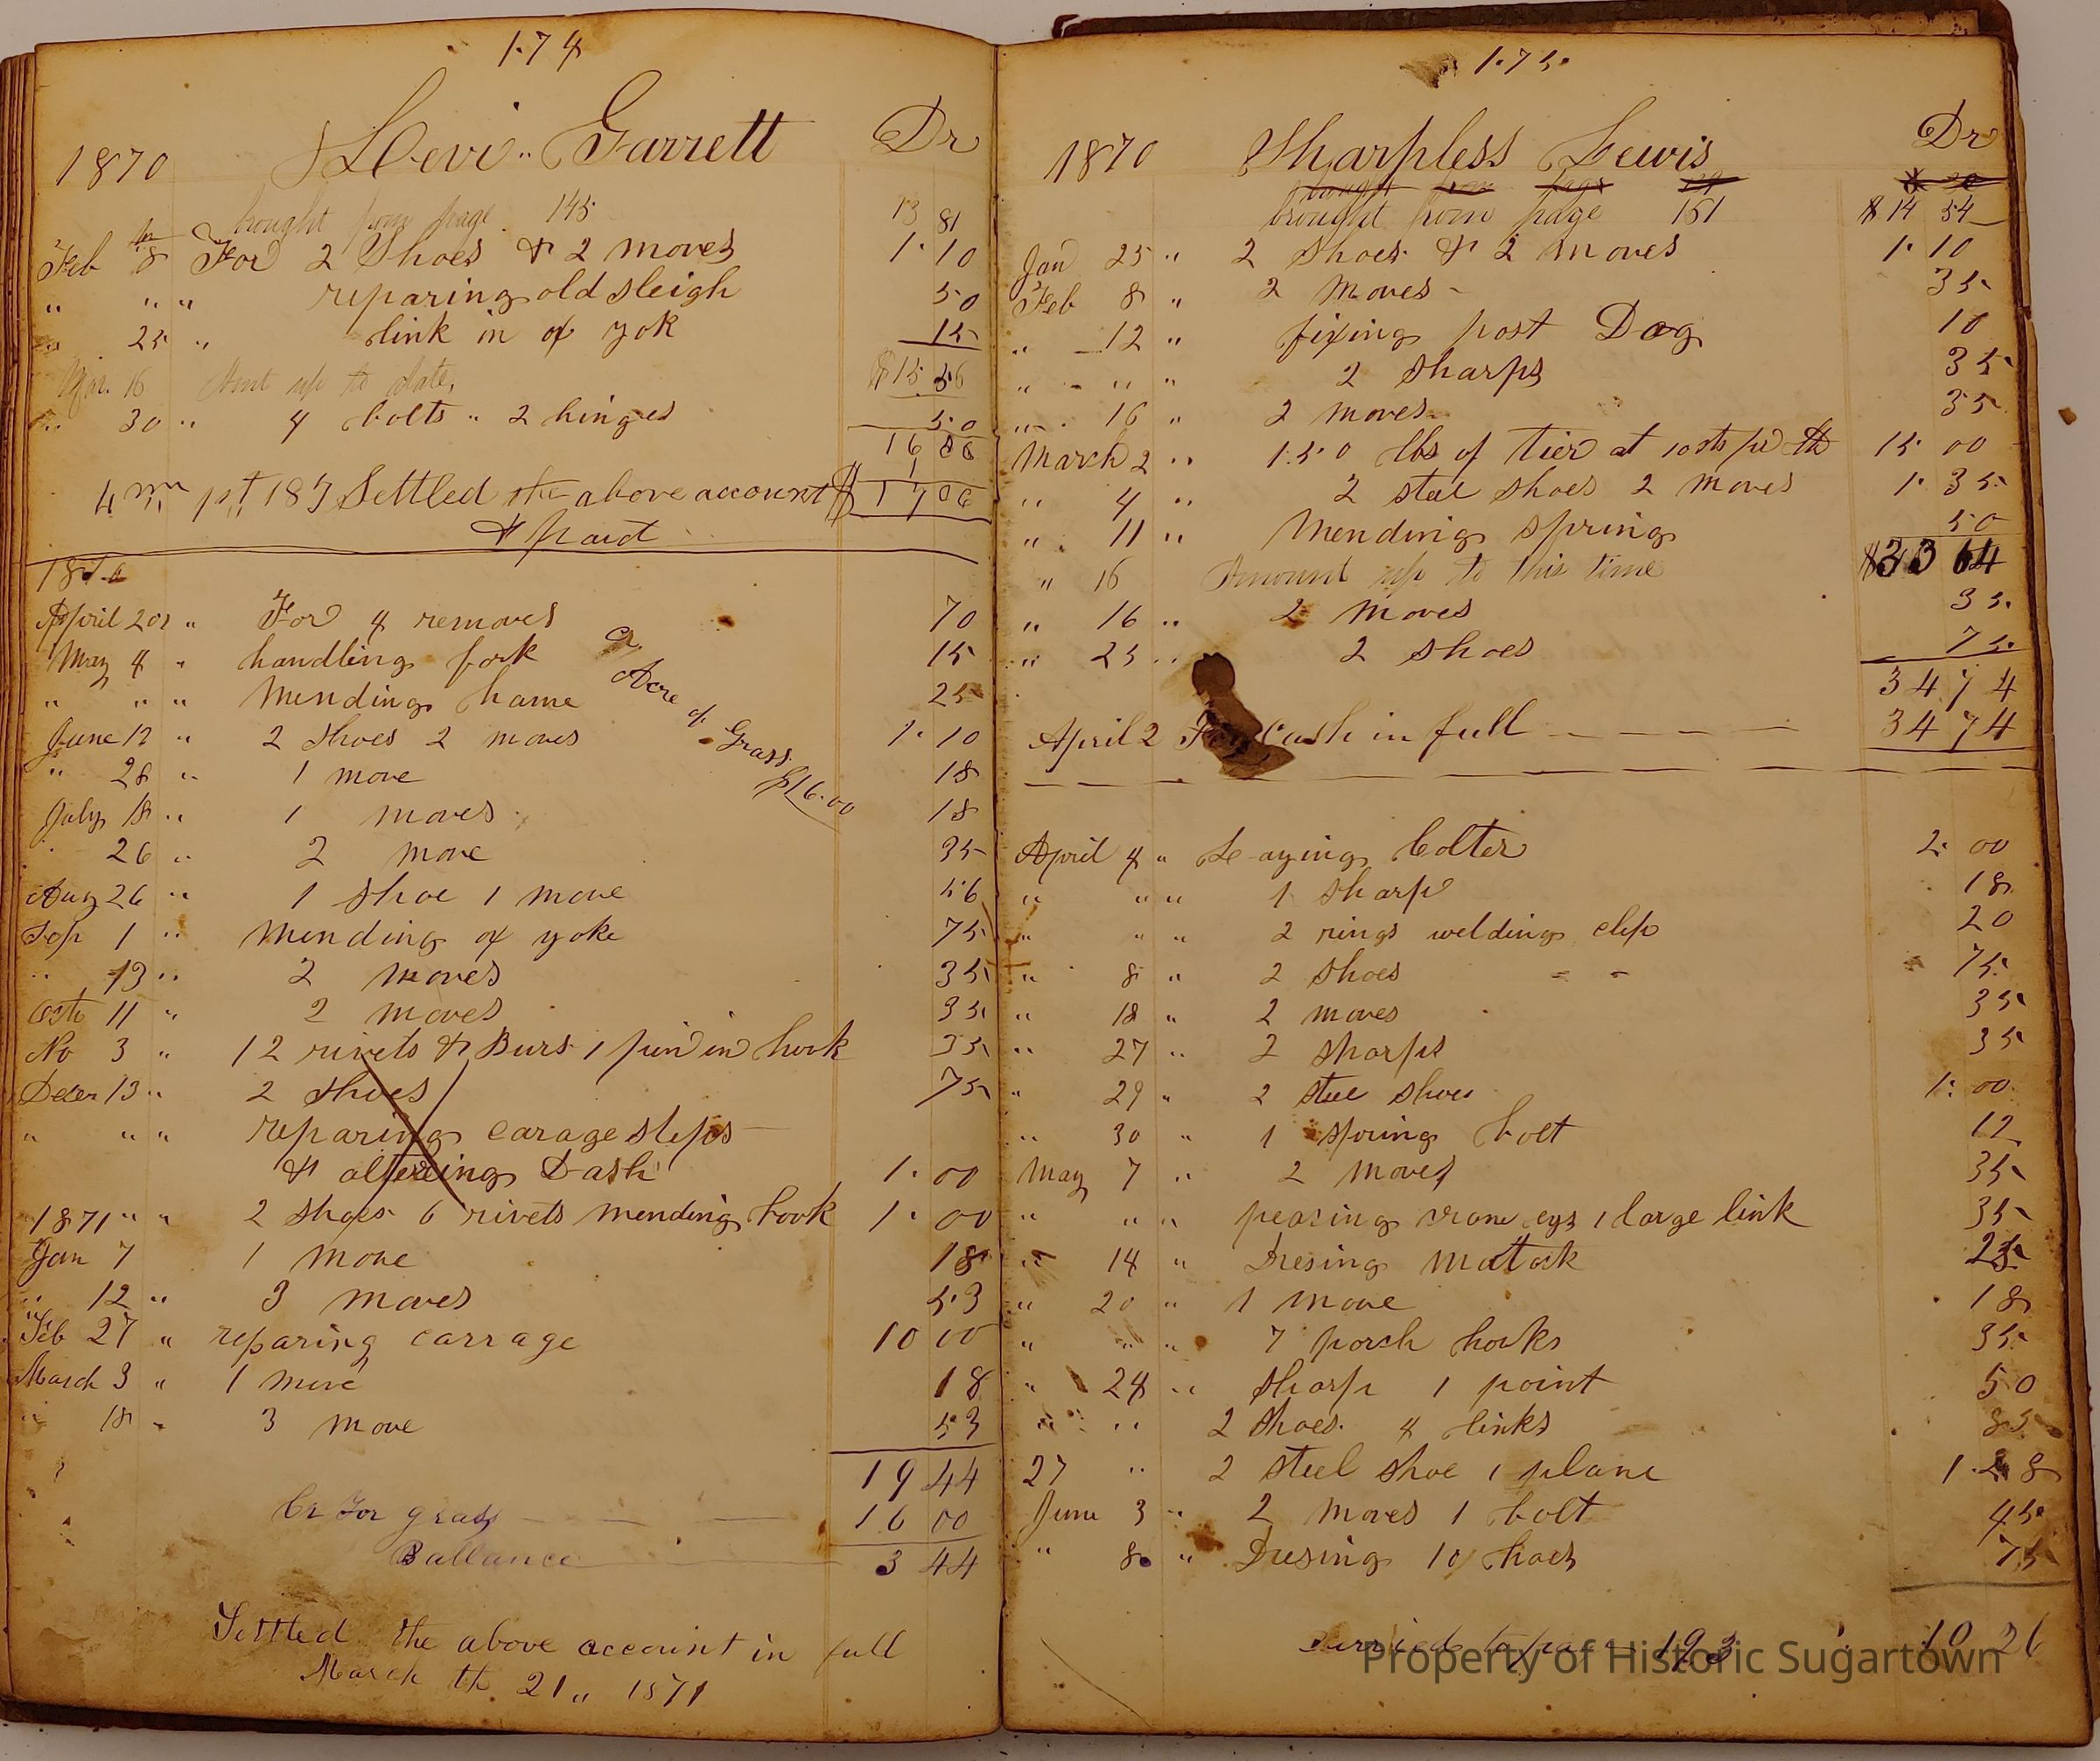 174
1870 Levi Garrett Dr
brought from page 145 13 81
Feb 8 For 2 Shoes & 2 moves 1.10
" " " reparing old sleigh 50
" 25 " link in ox yok 15
Mar. 16 Amt up to date, $15 56
" 30 " 4 bolts " 2 hinges 50
16 06
Settled the above account $ 17 06
& paid
April 20 " For 4 removes 70
May 4 " handling fork 15
" " " Mending hame 25
a Acre of Grass $16.00
June 12 " 2 shoes 2 moves 1.10
" 28 " 1 move 18
July 18 " 1 moves 18
26 " 2 move 35
Aug 26 " 1 shoe 1 move 56
Sep 1 " Mending ox yoke 75
" 13 " 2 moves 35
Octo 11 " 2 moves 35
No 3 " 12 rivets & Burs 1 pin in hook 35
Decem 13 " 2 shoes 75
" " " reparing carage steps
& altering Dash 1.00
1871 " " 2 shoes 6 rivets mending hook 1.00
Jan 7 1 move 18
" 12 " 3 moves 53
Feb 27 " reparing carrage 10 00
March 3 " 1 move 18
" 18 " 3 move 53
19 44
Cr For grass 16 00
Ballance 3 44
Settled the above account in full
March th 21 " 1871
175
1870 Sharpless Lewis Dr
brought from page 161 $14 54
Jan 25 " 2 shoes & 2 moves 1.10
Feb 8 " 2 moves 35
" 12 " fixing post Dog 10
" " " 2 sharps 35
" 16 " 2 moves 35
March 2 " 150 lbs of Tier at 10cts per lb 15 00
" 4 " 2 steel shoes 2 moves 1.35
" 11 " Mending spring 50
" 16 Amount up to this time $33 64
" 16 " 2 moves 35
" 25 " 2 shoes 75
34 74
April 2 For Cash in full 34 74
April 4 " Laying Colter 2.00
" " " 1 sharp 18
" " " 2 rings welding clip 20
" 8 " 2 shoes 75
" 18 " 2 moves 35
" 27 " 2 sharps 35
" 29 " 2 steel shoes 1.00
" 30 " 1 spring bolt 12
May 7 " 2 moves 35
" " " 1 large link 35
" 14 " Dresing Mattock 25
" 20 " 1 move 18
" " " 7 porch hooks 35
" 24 " sharp 1 point 50
" " " 2 shoes 4 links 85
27 " 2 steel shoe 1 plane
June 3 " 2 moves 1 bolt 45
" 8 " Dresing 10 hoes 75
carried to page 193 10 26
Property of Historic Sugartown